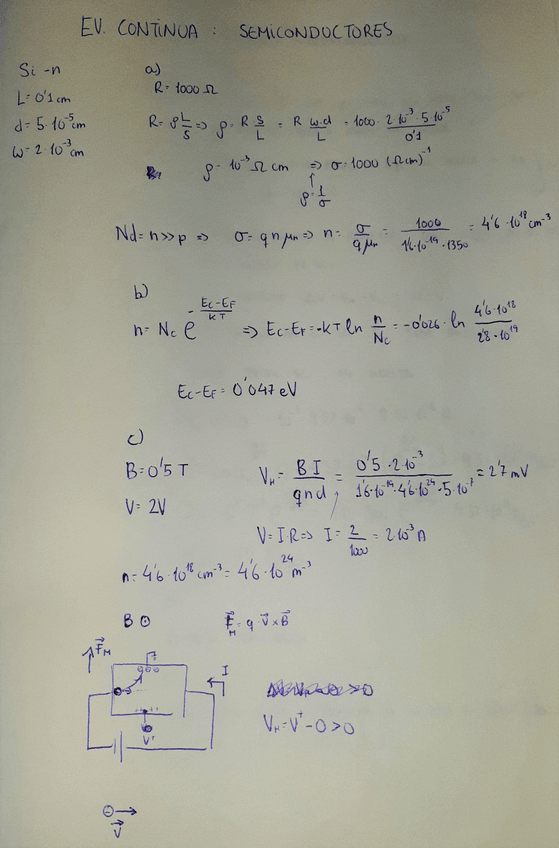 EV. CONTINUA: SEMICONDUCTORES
Si-n
L=0'1cm
d=5·10⁻⁵cm
w=2·10⁻³cm
a)
R=1000Ω
R=ρ L/S ⇒ ρ=R S/L = R w·d/L = 1000· 2·10⁻³·5·10⁻⁵/0'1
ρ=10⁻³Ωcm ⇒ σ=1000 (Ωcm)⁻¹
↑
ρ=1/σ
Nd=n>>p ⇒ σ=qnμn ⇒ n= σ/qμn = 1000/1'6·10⁻¹⁹·1350 = 4'6·10¹⁸cm⁻³
b)
n=Nc e^-(Ec-EF/KT) ⇒ Ec-EF=-KT ln n/Nc = -0'026·ln 4'6·10¹⁸/2'8·10¹⁹
Ec-EF=0'047eV
c)
B=0'5T
V=2V
VH= BI/qnd = 0'5·2·10⁻³/1'6·10⁻¹⁹·4'6·10²⁴·5·10⁻⁷ = 2'7mV
V=IR ⇒ I= 2/1000 = 2·10⁻³A
n=4'6·10¹⁸cm⁻³=4'6·10²⁴m⁻³
B ⊙
F⃗M=q·V⃗×B⃗
F⃗M
I
V⁺
VH=V⁺-0>0
⊖→
V⃗